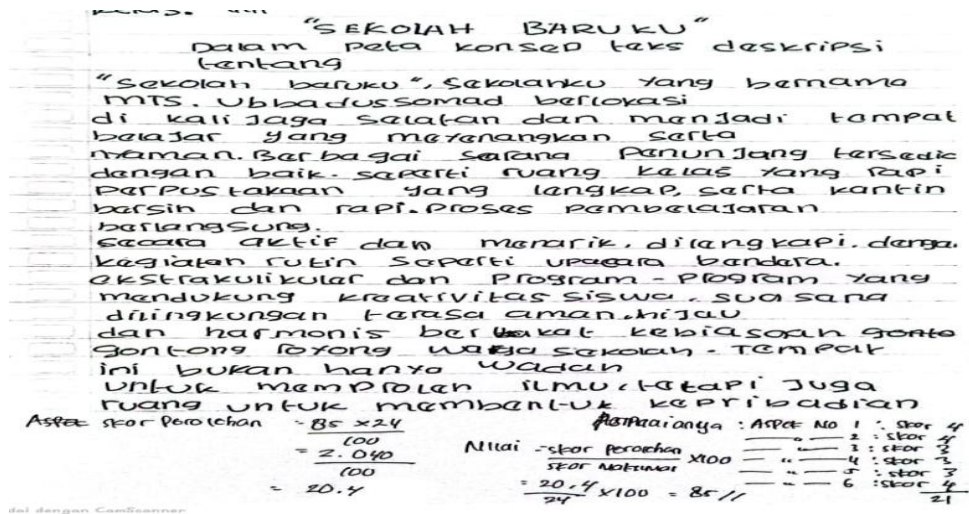 "SEKOLAH BARUKU"
Dalam peta konsep teks deskripsi
tentang
"Sekolah baruku", Sekolahku yang bernama
MTS. Ubbadussomad berlokasi
di kali Jaga Selatan dan menjadi tempat
belajar yang menyenangkan serta
nyaman. Berbagai sarana Penunjang tersedia
dengan baik. seperti ruang kelas yang rapi
Perpustakaan yang lengkap, serta kantin
bersih dan rapi. Proses pembelajaran
berlangsung.
secara aktif dan menarik. dilengkapi. denga.
kegiatan rutin seperti upacara bendara.
ekstrakulikuler dan Program-Program yang
mendukung kreativitas siswa. suasana
dilingkungan terasa aman.hijau
dan harmonis berkat kebiasaan
gontong royong warga sekolah. Tempat
ini bukan hanya wadah
untuk memproleh ilmu, tetapi juga
ruang untuk membentuk kepribadian
Aspek skor Perolehan = 85 x 24
100
= 2.040
100
= 20.4
Nilai = skor perolehan x100
skor maksimal
= 20,4 x 100 = 85 //
24
: Aspek No 1 : skor 4
— " — 2 : skor 4
— " — 3 : skor 3
— " — 4 : skor 3
— " — 5 : skor 3
— " — 6 : skor 4
21
dai dengan CamScanner